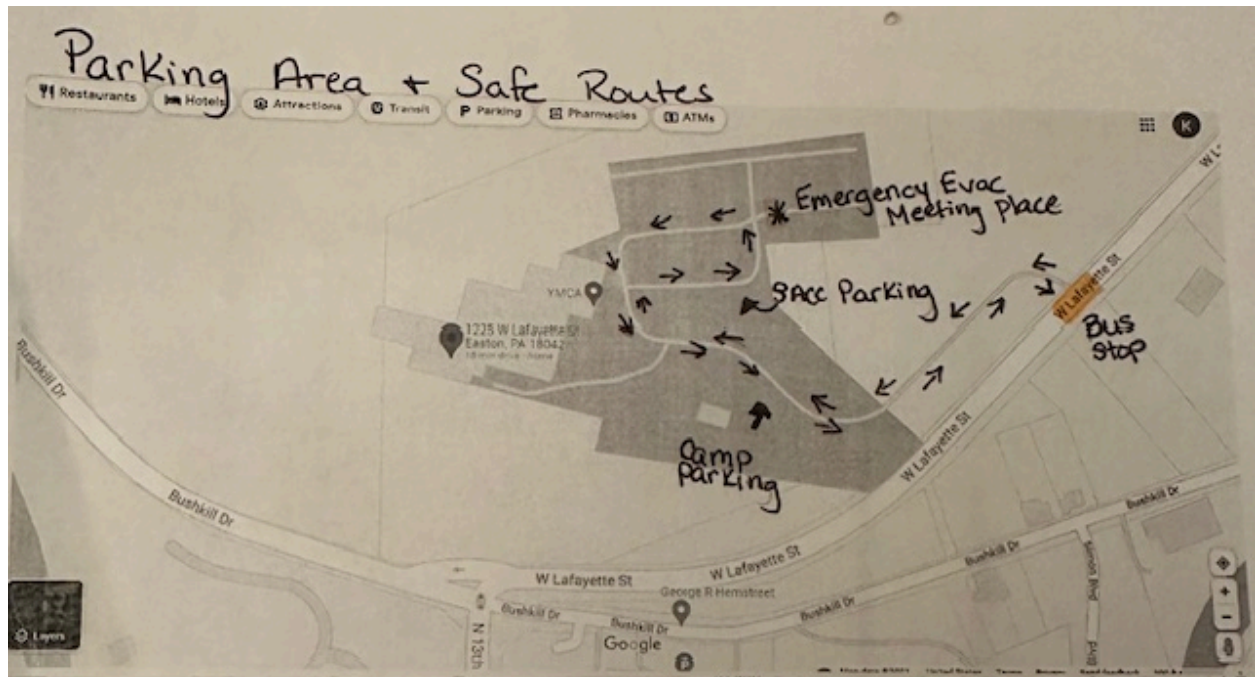 Parking Area + Safe Routes
Restaurants
Hotels
Attractions
Transit
Parking
Pharmacies
ATMs
K
W L
Emergency Evac
Meeting Place
YMCA
SAcc Parking
W Lafayette St
Bus
Stop
1225 W Lafayette St
Easton, PA 18042
Camp
Parking
W Lafayette St
Bushkill Dr
Bushkill Dr
Bushkill Dr
Bushkill Dr
W Lafayette St
W Lafayette St
George R Hemstreet
Bushkill Dr
Bushkill Dr
Bushkill Dr
N 13th
Google
Layers